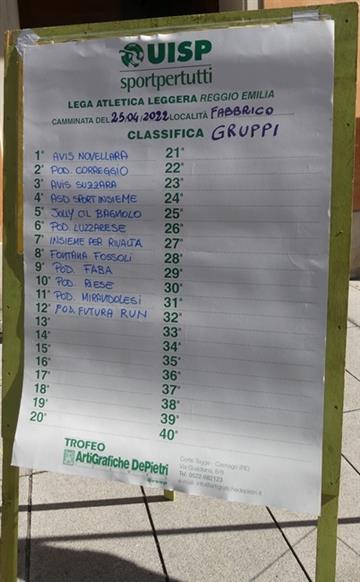 UISP
sportpertutti
LEGA ATLETICA LEGGERA REGGIO EMILIA
CAMMINATA DEL 25/04/2022 LOCALITÀ FABBRICO
CLASSIFICA GRUPPI
1° AVIS NOVELLARA
2° POD. CORREGGIO
3° AVIS SUZZARA
4° ASD SPORT INSIEME
5° JOLLY CIL BAGNOLO
6° POD. LUZZARESE
7° INSIEME PER RIVALTA
8° FONTANA FOSSOLI
9° POD. FABA
10° POD. RIESE
11° POD. MIRANDOLESI
12° POD. FUTURA RUN
13°
14°
15°
16°
17°
18°
19°
20°
21°
22°
23°
24°
25°
26°
27°
28°
29°
30°
31°
32°
33°
34°
35°
36°
37°
38°
39°
40°
TROFEO
ArtiGrafiche DePietri
Tel. 0522 682123